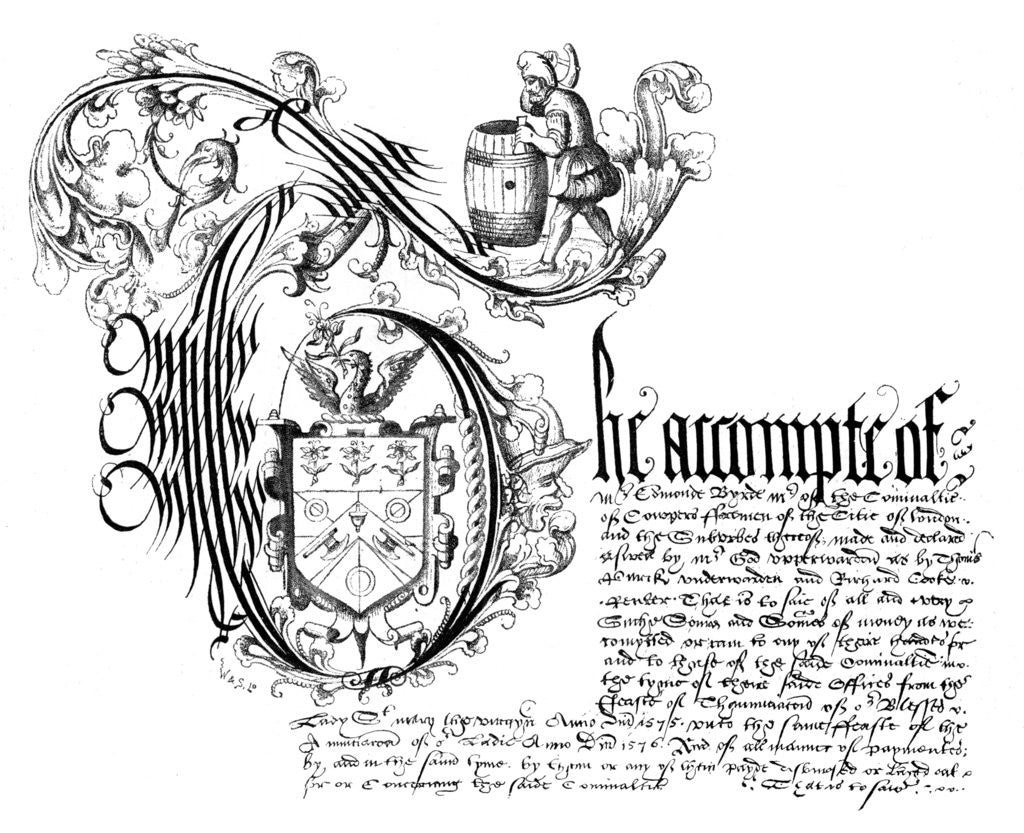 The accompte of
Mr Edmonde Byrde Mr of the Cominaltie
of Coopers ffreemen of the Citie of london.
and the Suburbes thereof: made and declared
aswell by Mr God upperwarden as by Thoms
underwarden and Richard Cooke
Renter. That is to saie of all and every
Suche Somes and Somes of money as we
or cam to eny of their handes for
and to thuse of the saide Cominaltie in
the tyme of theire saide Offices from the
ffeaste of Thanunciacion of or Blessed
Lady St mary the virgyn Anno Dni 1575. unto the same ffeaste of the
Annunciacon of or Ladie Anno Dni 1576. And of all manner of paymentes:
by, and in the same tyme. by them or any of them payde disbursed or layed out
for or Concerning the saide Cominaltie That is to saie
W & S. Lo